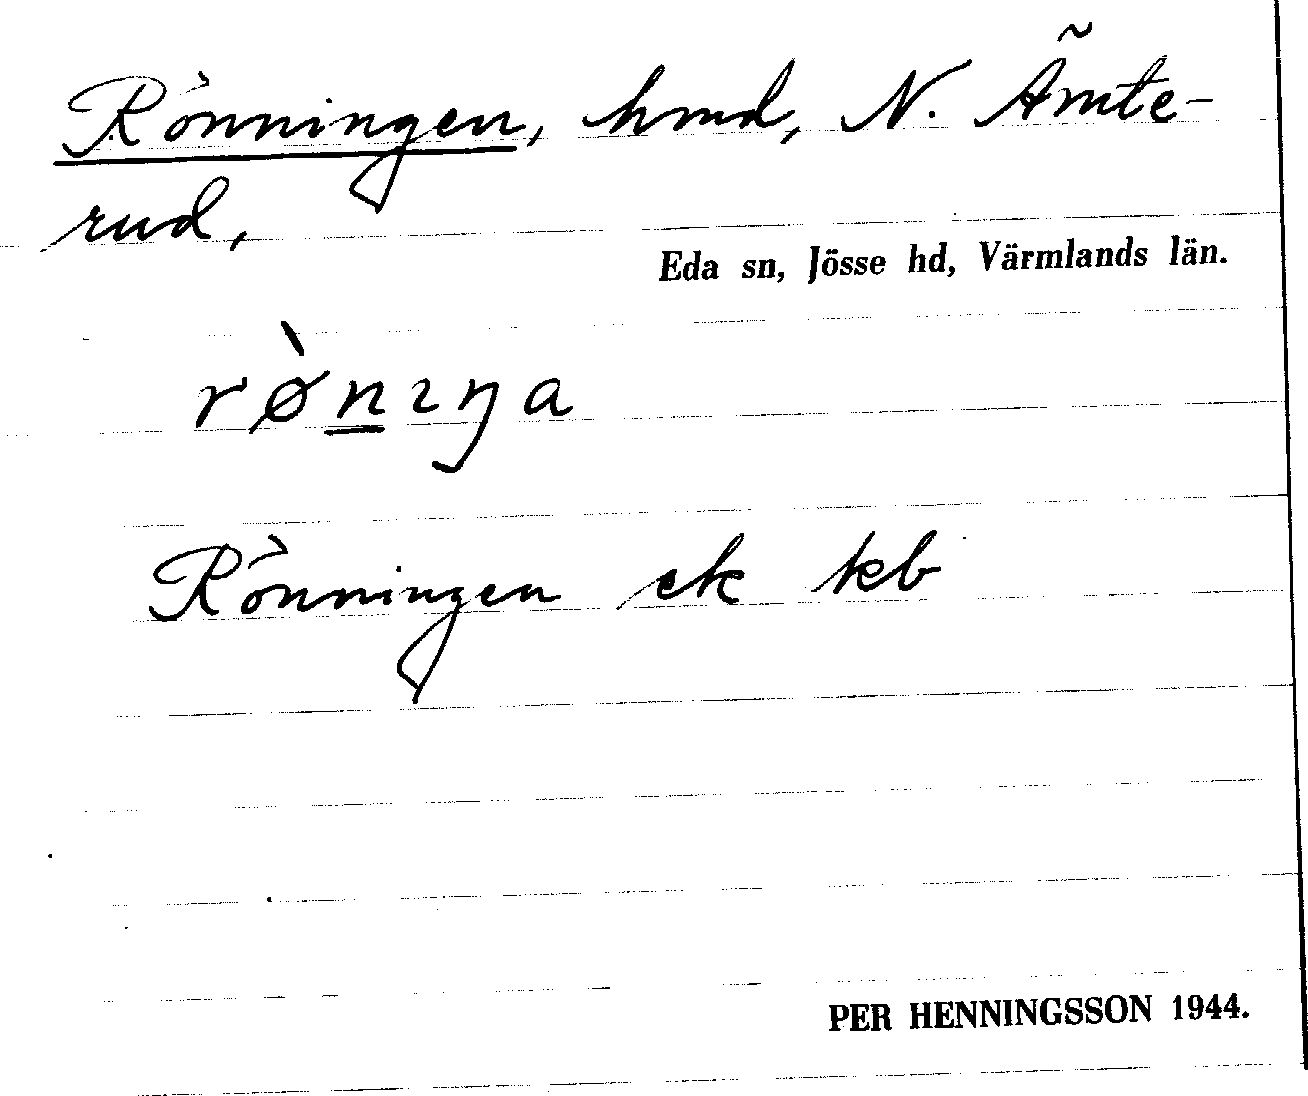 Rönningen, hmd, N. Ämte-
rud,
Eda sn, Jösse hd, Värmlands län.
rø̀n̲ıŋa
Rönningen ek kb
PER HENNINGSSON 1944.